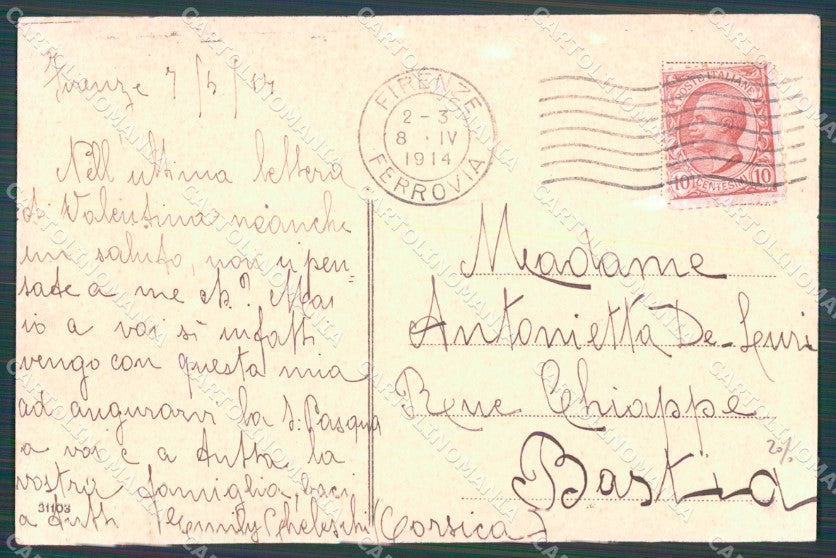 Firenze 7/4/914
Nell'ultima lettera
di Valentina neanche
un saluto, non ci pen-
sate a me eh? Mai
io a voi si infatti
vengo con questa mia
ad augurarvi la S. Pasqua
a voi e a tutta la
vostra famiglia, baci
a tutti Emmily
31103
FIRENZE
2-3
8 · IV
1914
FERROVIA
POSTE ITALIANE
10 CENTESIMI 10
Madame
Antonietta De-
Rue Chiappe
Bastia
(Corsica)
20/-
CARTOLINOMANIA